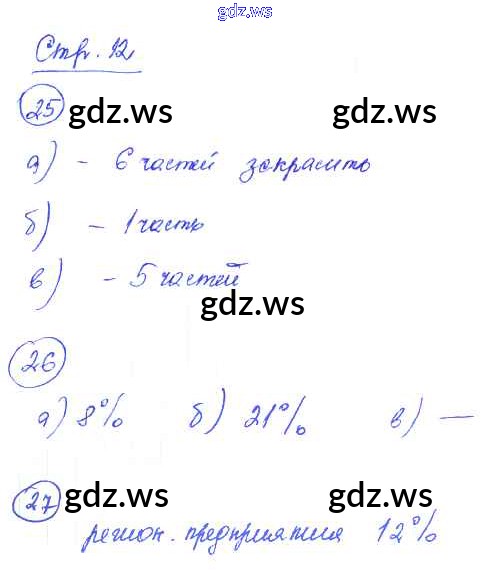 gdz.ws
Стр. 12
25 gdz.ws gdz.ws
а) - 6 частей закрасить
б) - 1 часть
в) - 5 частей
gdz.ws
26
а) 8% б) 21% в) —
27 gdz.ws gdz.ws
регион. предприятия 12%